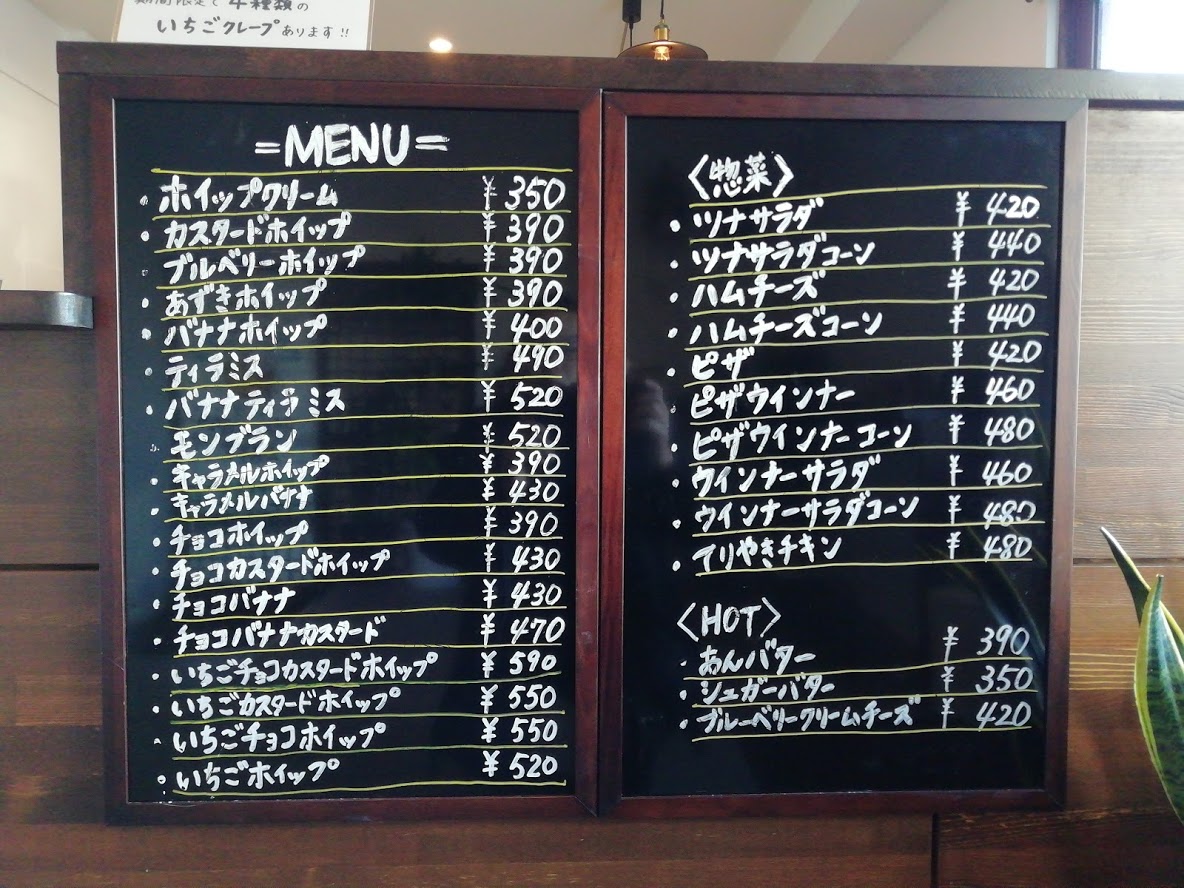 期間限定で4種類の
いちごクレープあります!!
=MENU=
・ホイップクリーム ¥350
・カスタードホイップ ¥390
・ブルベリーホイップ ¥390
・あずきホイップ ¥390
・バナナホイップ ¥400
・ティラミス ¥490
・バナナティラミス ¥520
・モンブラン ¥520
・キャラメルホイップ ¥390
・キャラメルバナナ ¥430
・チョコホイップ ¥390
・チョコカスタードホイップ ¥430
・チョコバナナ ¥430
・チョコバナナカスタード ¥470
・いちごチョコカスタードホイップ ¥590
・いちごカスタードホイップ ¥550
・いちごチョコホイップ ¥550
・いちごホイップ ¥520
〈惣菜〉
・ツナサラダ ¥420
・ツナサラダコーン ¥440
・ハムチーズ ¥420
・ハムチーズコーン ¥440
・ピザ ¥420
・ピザウインナー ¥460
・ピザウインナーコーン ¥480
・ウインナーサラダ ¥460
・ウインナーサラダコーン ¥480
・てりやきチキン ¥480
〈HOT〉
・あんバター ¥390
・シュガーバター ¥350
・ブルーベリークリームチーズ ¥420